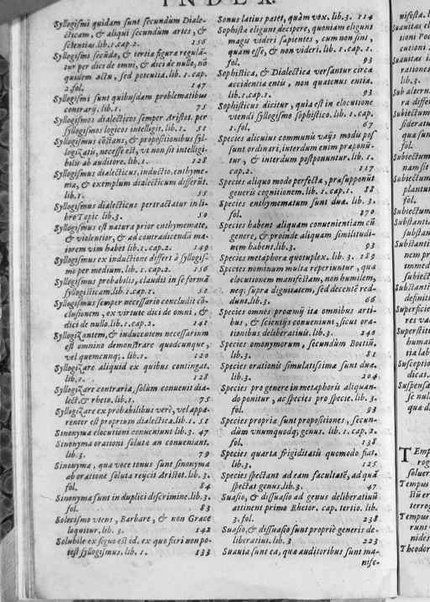 INDEX.
Syllogismi quidam sunt secundum Diale-
cticam, & aliqui secundum artes, &
scientias lib. 1. cap. 2. 156
Syllogismi secūda, & tertia figura regulā-
tur per dici de omni, & dici de nullo, nō
quidem actu, sed potentia. lib. 1. cap.
2. fol. 147
Syllogismi sunt quibusdam problematibus
contrarij. lib. 1. 75
Syllogismos dialecticos semper Aristot. per
syllogismos logicos intelligit. lib. 1. 51
Syllogismus cōstans, & propositionibus syl-
logizatis, necesse est, vt non sit intelligi-
bilis ab auditore. lib. 1. 128
Syllogismus dialecticus, inductio, enthyme-
ma, & exemplum dialecticum differūt.
lib. 1. 55
Syllogismus dialecticus pertractatur in li-
bro Topic. lib. 3. 50
Syllogismus est natura prior enthymemate,
& violentior, & ad contradicendū ma-
iorem vim habet lib. 1. cap. 2. 149
Syllogismus ex inductione differt à syllogis-
mo per medium. lib. 1. cap. 2. 156
Syllogismus probabilis, claudit in se formā
syllogisticam. lib. 1. cap. 2.
Syllogismus semper necessario concludit cō-
clusionem, ex virtute dici de omni, &
dici de nullo. lib. 1. cap. 2. 141
Syllogizantem, & inducentem necessarium
est omnino demonstrare quodcunque,
vel quemcunq;. lib. 1. 120
Syllogizare aliquid ex quibus contingat.
lib. 1. 128
Syllogizare contraria, solùm conuenit dia-
lect. & rheto. lib. 1. 75
Syllogizare ex probabilibus verè, vel appa-
renter est proprium dialectica. lib. 1. 51
Sinonyma elocutioni conueniunt lib. 3. 47
Sinonyma orationi soluta an conueniant.
lib. 3. 79
Sinonyma, qua voce tenus sunt sinonyma
ab oratione soluta reycit Aristot. lib. 3.
fol. 84
Synonyma sunt in duplici discrimine. lib. 3.
fol. 83
Solecismo vtens, Barbarè, & non Græcè
loquitur. lib. 3. 142
Solubile ex signo est id, ex quo fieri non po-
test syllogismus. lib. 1. 133
Sonus latius patet, quàm vox. lib. 3. 114
Sophista eligunt decipere, quoniam eligunt
magis videri sapientes, cum non sint,
quàm esse, & non videri. lib. 1. cap. 1.
fol. 93
Sophistica, & Dialectica versantur circa
accidentia entis, non quatenus entia.
lib. 1. cap. 1. 93
Sophisticus dicitur, quia est in elocutione
vtendi syllogismo sophistico. lib. 1. cap.
1. fol. 67
Species alicuius communis vnius modi pos
sunt ordinari, interdum enim prænonū-
tur, & interdum postponuntur. lib. 1.
cap. 2. 117
Species aliquo modo perfecta, præsupponit
generis cognitionem. lib. 1. cap. 1. 88
Species enthymematum sunt dua. lib. 3.
fol. 270
Species habent aliquam conuenientiam cū
genere, & proinde aliquam similitudi-
nem habent. lib. 3. 93
Species metaphora quotuplex. lib. 3. 189
Species nominum multa reperiuntur, qua
elocutionem manifestam, non humilem,
neq; supra dignitatem, sed decentē red-
dunt. lib. 3. 66
Species omnes proæmij ita omnibus artibus,
& scientijs conueniunt, sicut ora-
tionibus deliberatiuis. lib. 3. 240
Species omonymorum, secundum Boëtiū.
lib. 3. 81
Species orationis simulatissima sunt dua.
lib. 3. 204
Species pro genere in metaphoris aliquan-
do ponitur, ac species pro specie. lib. 3.
fol. 93
Species propria sunt propositiones, secun-
dùm vnumquodq; genus. lib. 1. cap. 2.
fol. 138
Species quarta frigiditatis quomodo fiat.
lib. 3. 125
Species spectant ad eam facultatē, ad quā
spectat genus. lib. 3. 47
Suasio, & dissuasio ad genus deliberatiuū
attinent primo Rhetor. cap. tertio. lib.
3. fol. 238
Suasio, & dissuasio sunt propriè generis de-
liberatiui. lib. 3 223
Suauia sunt ea, qua auditoribus sunt ma-
nife-